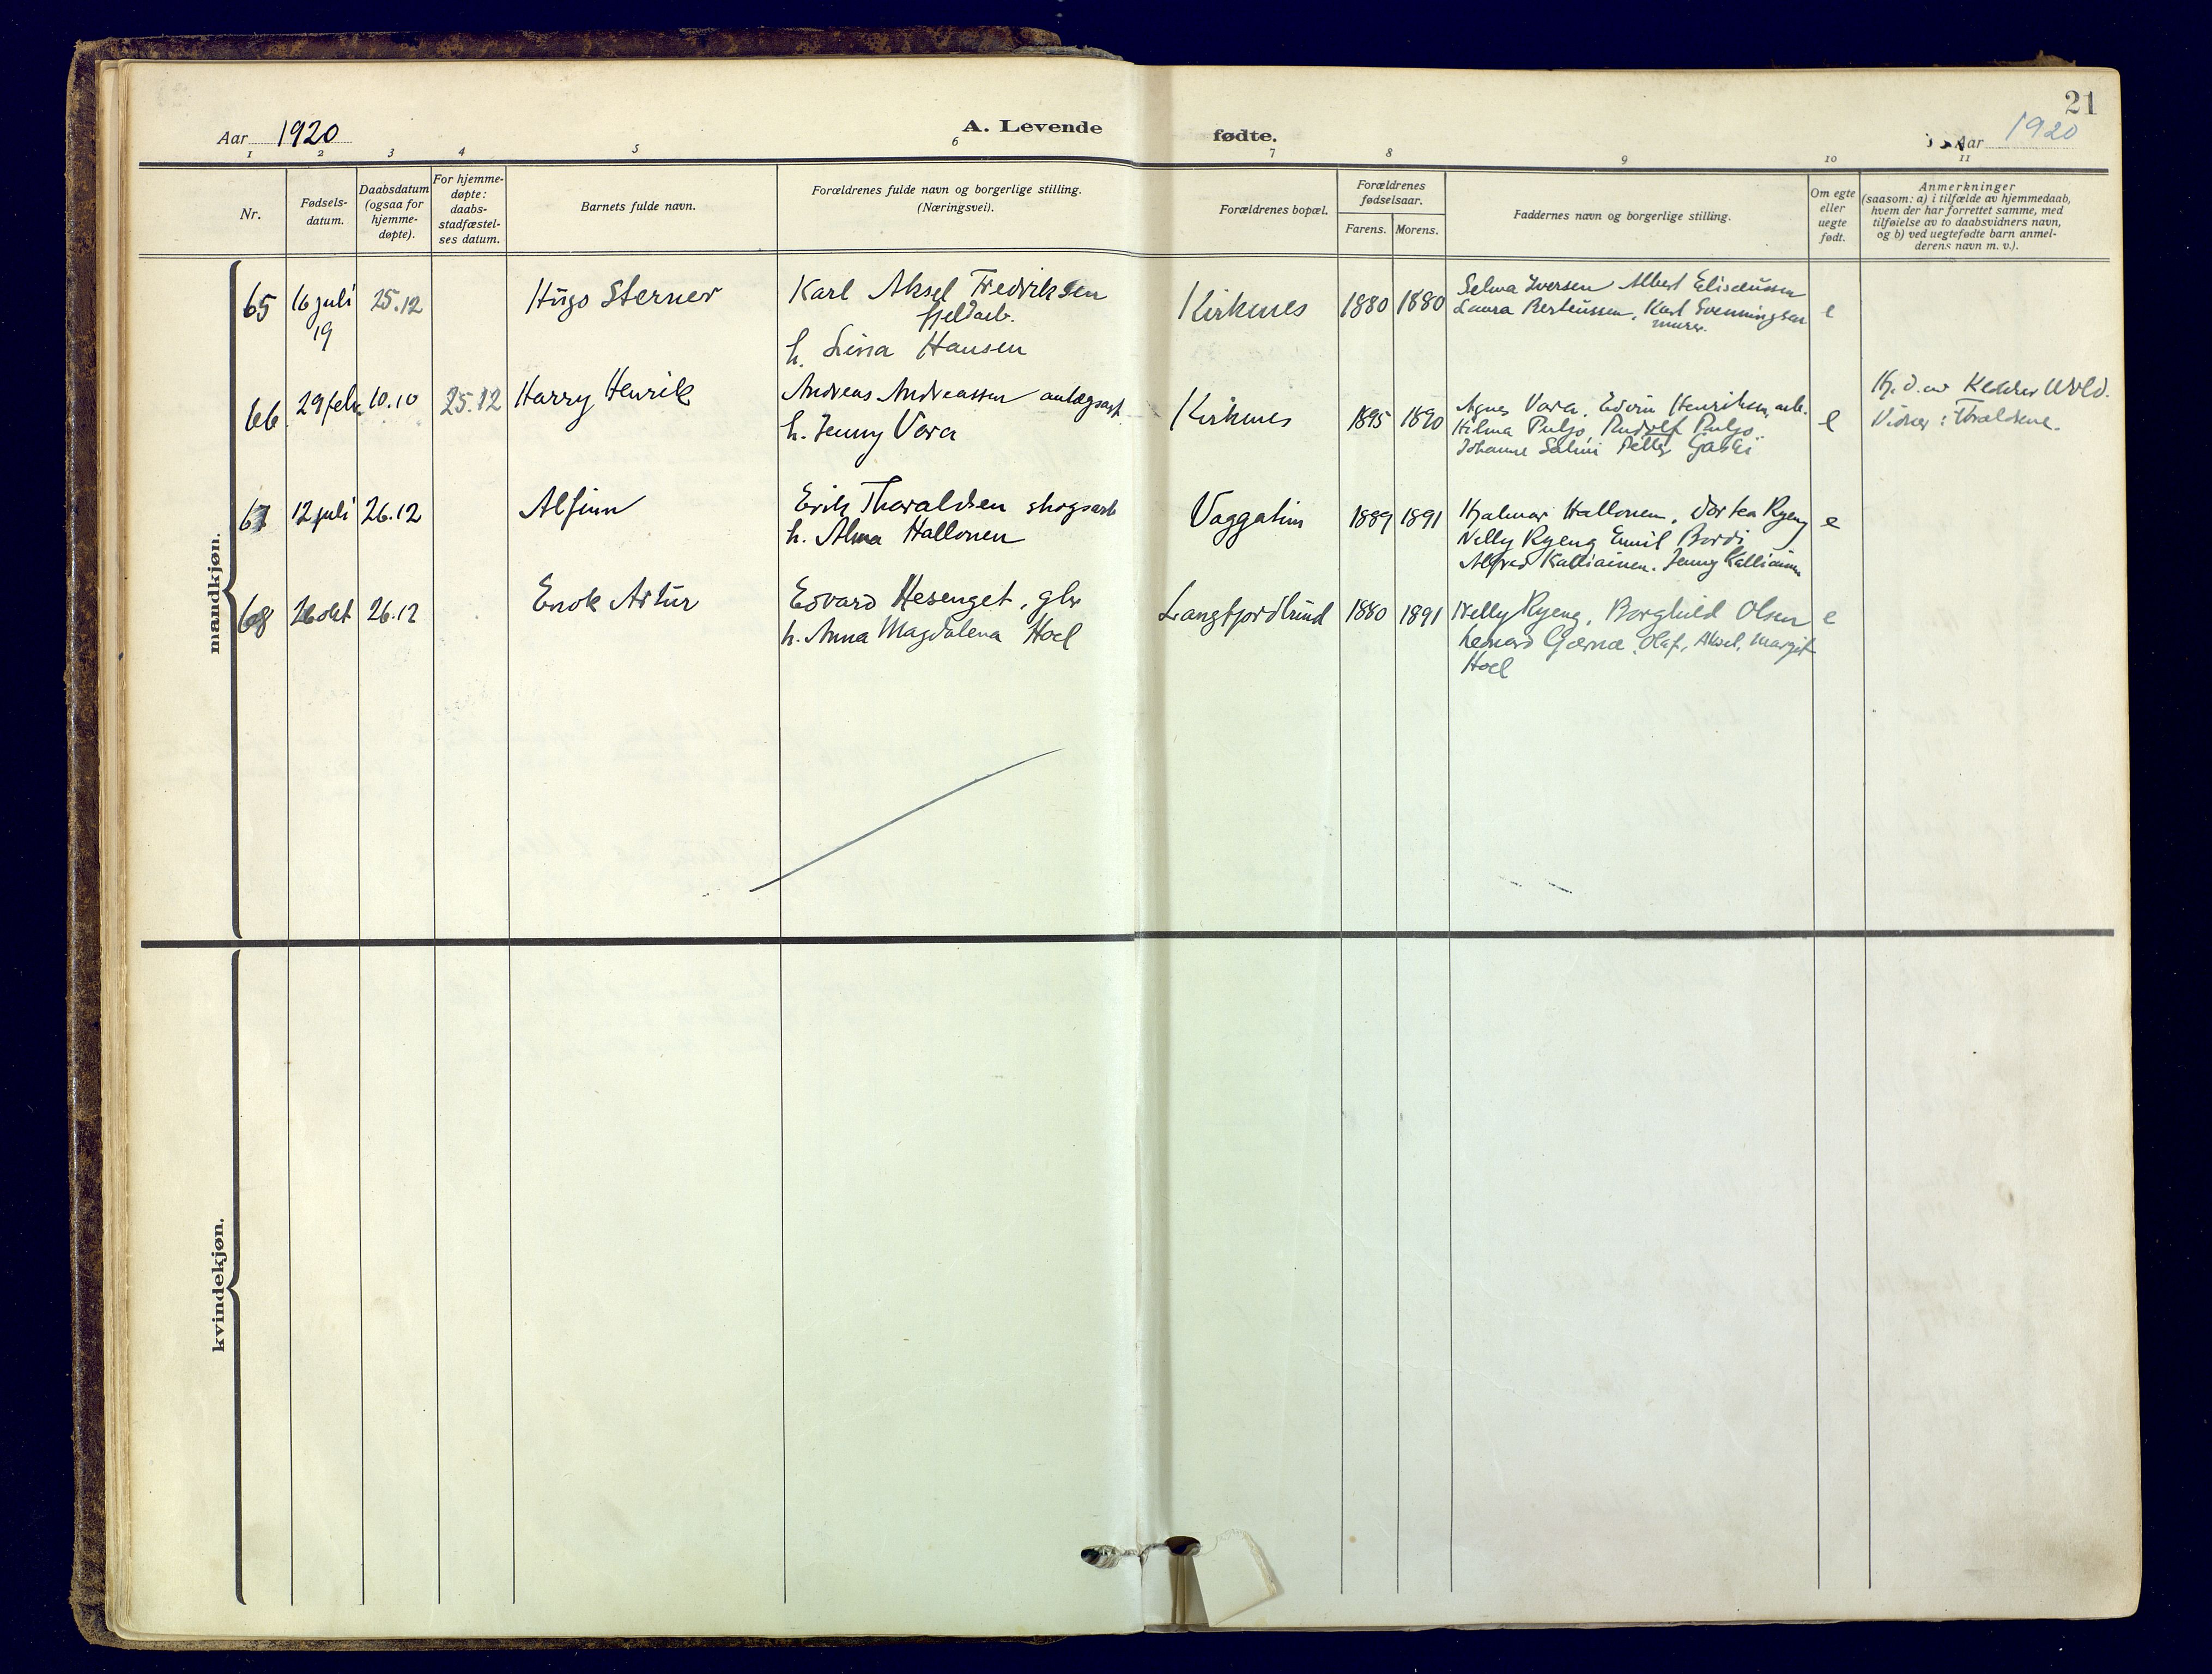 21
Aar 1920
A. Levende fødte.
Aar 1920
1 2 3 4 5 6 7 8 9 10 11
Nr.
Fødsels-
datum.
Daabsdatum
(ogsaa for
hjemme-
døpte).
For hjemme-
døpte:
daabs-
stadfæstel-
ses datum.
Barnets fulde navn.
Forældrenes fulde navn og borgerlige stilling.
(Næringsvei).
Forældrenes bopæl.
Forældrenes
fødselsaar.
Farens. Morens.
Faddernes navn og borgerlige stilling.
Om egte
eller
uegte
født.
Anmerkninger
(saasom: a) i tilfælde av hjemmedaab,
hvem der har forrettet samme, med
tilføielse av to daabsvidners navn,
og b) ved uegtefødte barn anmel-
derens navn m. v.).
mandkjøn.
65 16 juli 25.12 Hugo Sterner Karl Aksel Fredriksen Kirkenes 1880 1880 Selma Iversen Albert Eliseussen e
19 fjeldarb. Laura Berteussen, Karl Svenningsen
h. Lina Hansen murer.
66 29 feb. 10.10 25.12 Harry Henrik Andreas Andreassen anlægsarb. Kirkenes 1895 1890 Agnes Vara, Edvin Henriksen, arb. e Hj. d. av
h. Jenny Vara Hilma Puljo, Rudolf Puljo
Vidner:
Johanne Salmi Petter
67 12 juli 26.12 Alfinn Erik Thoraldsen skogsarb Vaggatim 1889 1891 Hjalmar Hallonen, Dortea Ryeng e
h. Alma Hallonen Nelly Ryeng Emil Bordi
Alfred Kalliainen. Jenny Kalliainen
68 26 okt 26.12 Enok Artur Edvard Hesenget, gbr Langfjordbund 1880 1891 Nelly Ryeng, Borghild Olsen e
h. Anna Magdalena Hoel Leonard Gjærna, Olaf, Aksel, Margit
Hoel
kvindekjøn.